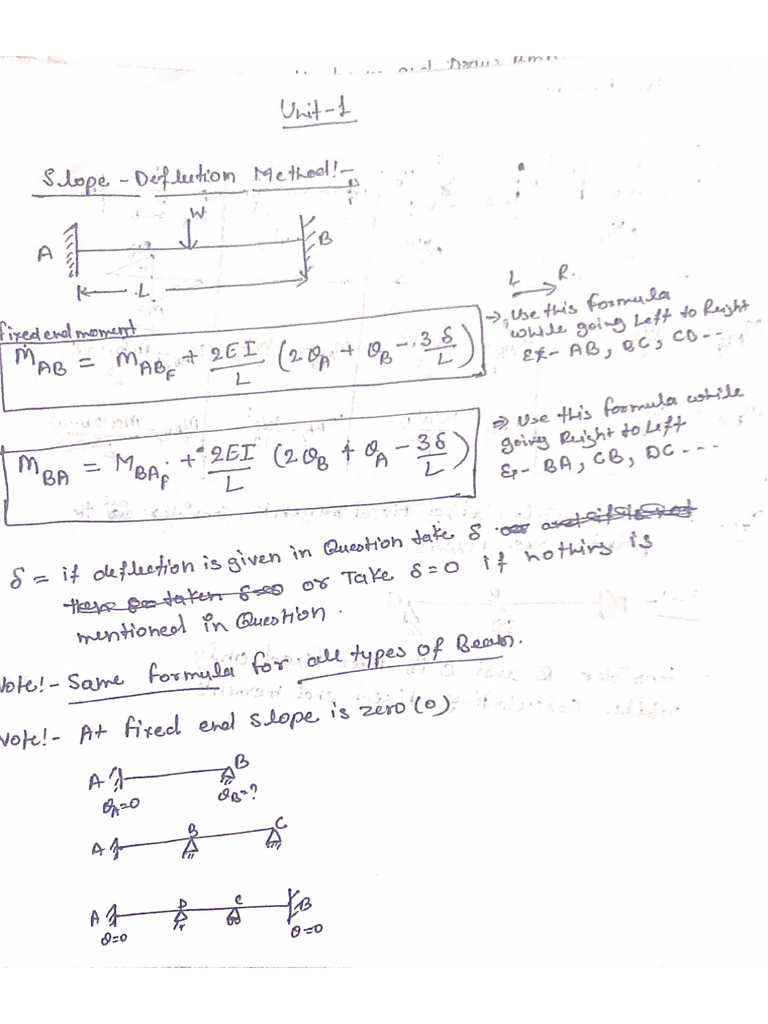 and Draw
Unit-1
Slope - Deflection Method!-
W
A
B
L
L → R.
fixed end moment
M_AB = M_ABF + 2EI/L (2θ_A + θ_B - 3δ/L)
→ Use this formula
while going Left to Right
Ex- AB, BC, CD--
M_BA = M_BAF + 2EI/L (2θ_B + θ_A - 3δ/L)
⇒ Use this formula while
going Right to Left
Ex- BA, CB, DC ---
δ = if deflection is given in Question take δ
or Take δ=0 if nothing is
mentioned in Question.
Note!- Same formula for all types of Beam.
Note!- At fixed end slope is zero (0)
A
B
θ_A=0
θ_B=?
A
B
C
A
D
C
B
θ=0
θ=0